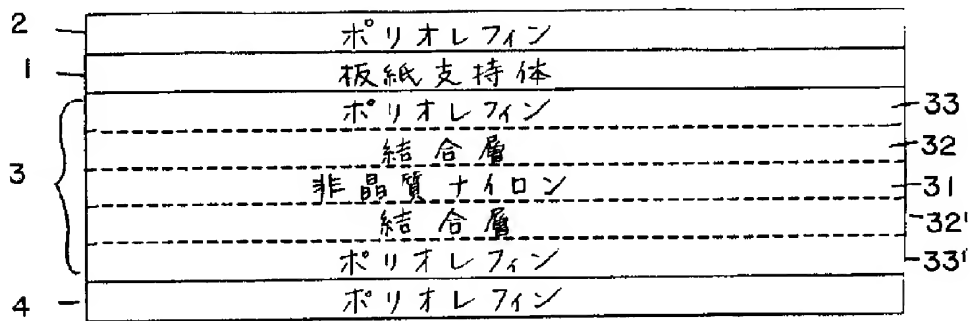 2 ポリオレフィン
1 板紙支持体
ポリオレフィン 33
結合層 32
3
非晶質ナイロン 31
結合層 32'
ポリオレフィン 33'
4 ポリオレフィン